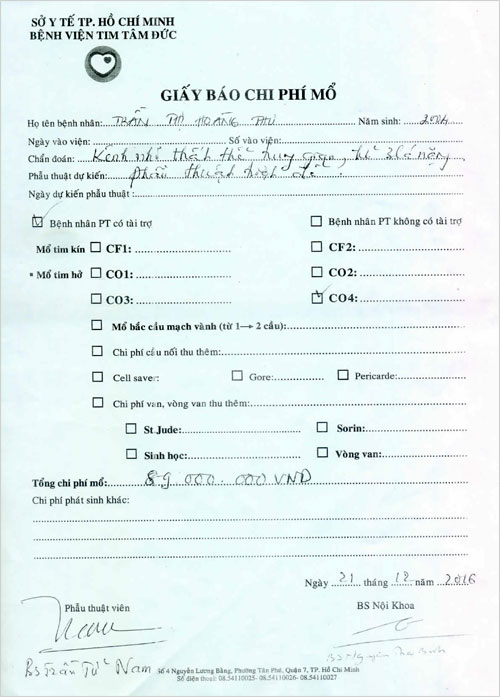 SỞ Y TẾ TP. HỒ CHÍ MINH
BỆNH VIỆN TIM TÂM ĐỨC
GIẤY BÁO CHI PHÍ MỔ
Họ tên bệnh nhân: TRẦN THỊ HOÀNG THƯ Năm sinh: 2004
Ngày vào viện: Số vào viện:
Chẩn đoán: Kênh nhĩ thất thể, hở 3 lá nặng
Phẫu thuật dự kiến: phẫu thuật triệt để
Ngày dự kiến phẫu thuật :
Bệnh nhân PT có tài trợ Bệnh nhân PT không có tài trợ
Mổ tim kín CF1: CF2:
Mổ tim hở CO1: CO2:
CO3: CO4:
Mổ bắc cầu mạch vành (từ 1→ 2 cầu):
Chi phí cầu nối thu thêm:
Cell saver: Gore: Pericarde:
Chi phí van, vòng van thu thêm:
St Jude: Sorin:
Sinh học: Vòng van:
Tổng chi phí mổ: 89.000.000 VND
Chi phí phát sinh khác:
Ngày 21 tháng 12 năm 2016
Phẫu thuật viên BS Nội Khoa
BS Trần Từ Nam
Số 4 Nguyễn Lương Bằng, Phường Tân Phú, Quận 7, TP. Hồ Chí Minh
Số điện thoại: 08.54110025- 08.54110026- 08.54110027